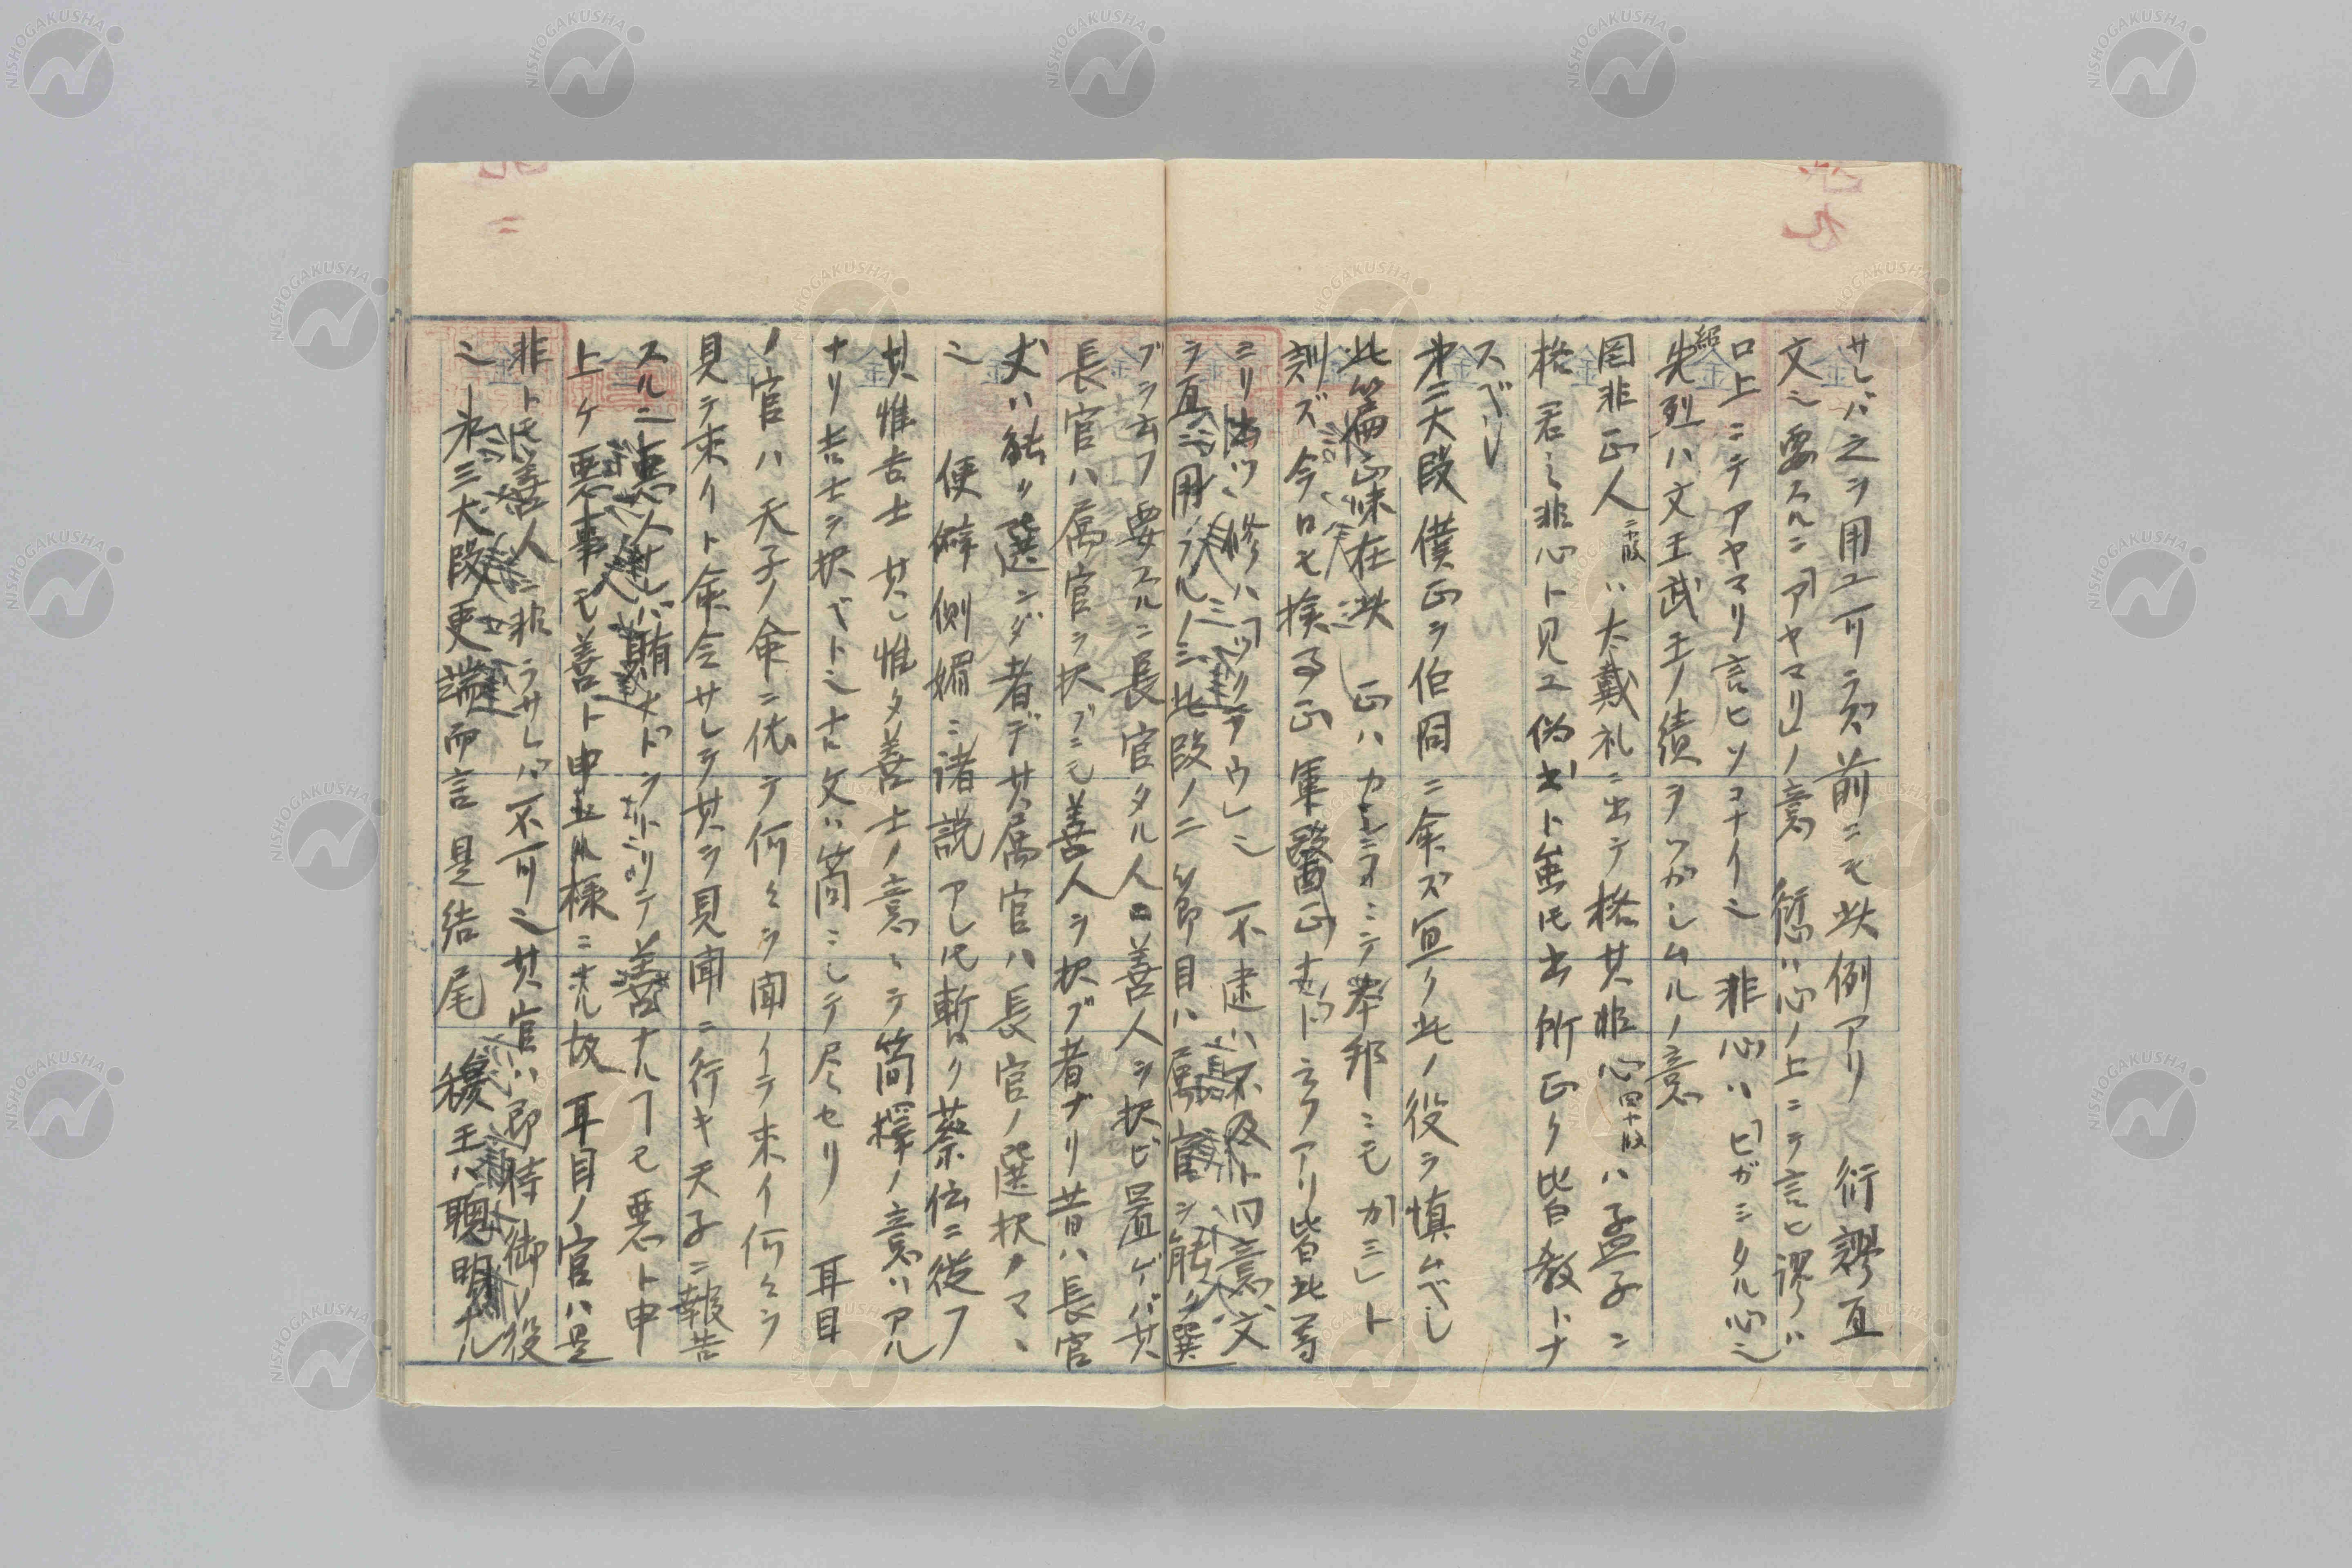 サレバ之ヲ用ユ可ラズ前ニモ此例アリ 衍謬亙
文シ要スルニ「アヤマリ」ノ意 愆ハ心ノ上ニテ言ヒ謬ハ
口上ニテアヤマリ言ヒソコナイシ 非心ハ「ヒガミタル心シ
紹
先烈ハ文王武王ノ績ヲツガシムルノ意
罔非正人ハ大戴礼ニ出テ格其非心四十段ハ孟子ニ
格君之非心ト見ユ偽書ト雖𪜈出所正ク皆教トナ
スベシ
第二大段僕正ヲ伯冏ニ命ズ宣ク此ノ役ヲ慎ムベシ
此篇正味在此 正ハカミニテ本邦ニモ「カミ」ト
訓ズ今日モ検事正軍醫正ナドト云フアリ皆此等
ニリ 修ハ「ツクラウ」シ 不逮ハ不及ト同意文
ラ亙ニ用ラルノミ此段ノ二節目ハ属官ヲ能ク選
ブヲ云フ要スルニ長官タル人善人ヲ択ビ置ケバ其
長官ハ属官ヲ択ブニモ善人ヲ択ブ者ナリ昔ハ長官
丈ハ能ク選ンダ者デ其属官ハ長官ノ選択ノマヽ
シ 便僻側媚ニ諸説アレ𪜈暫ク蔡伝ニ従フ
其惟吉士 其レ惟タ善士ノ意ミテ簡擇ノ意ハアル
ナリ吉士ヲ択ベトシナト文ハ簡ニシテ尽セリ 耳目
ノ官ハ天子ノ命ニ依テ何々ヲ聞イテ来イ何々ヲ
見テ来イト命令サレテ其ヲ見聞ニ行キ天子ニ報告
スルニ悪人ナレバ賄ナドヲ取リテ善ナルヿモ悪ト申
上ケ悪事モ善ト申上ル様ニナル故耳目ノ官ハ是
非トモ善人ニ非ラサレバ不可シ其官ハ即侍御ノ役
シ 第三大段更端而言是結尾 穆王ハ聰明ナル